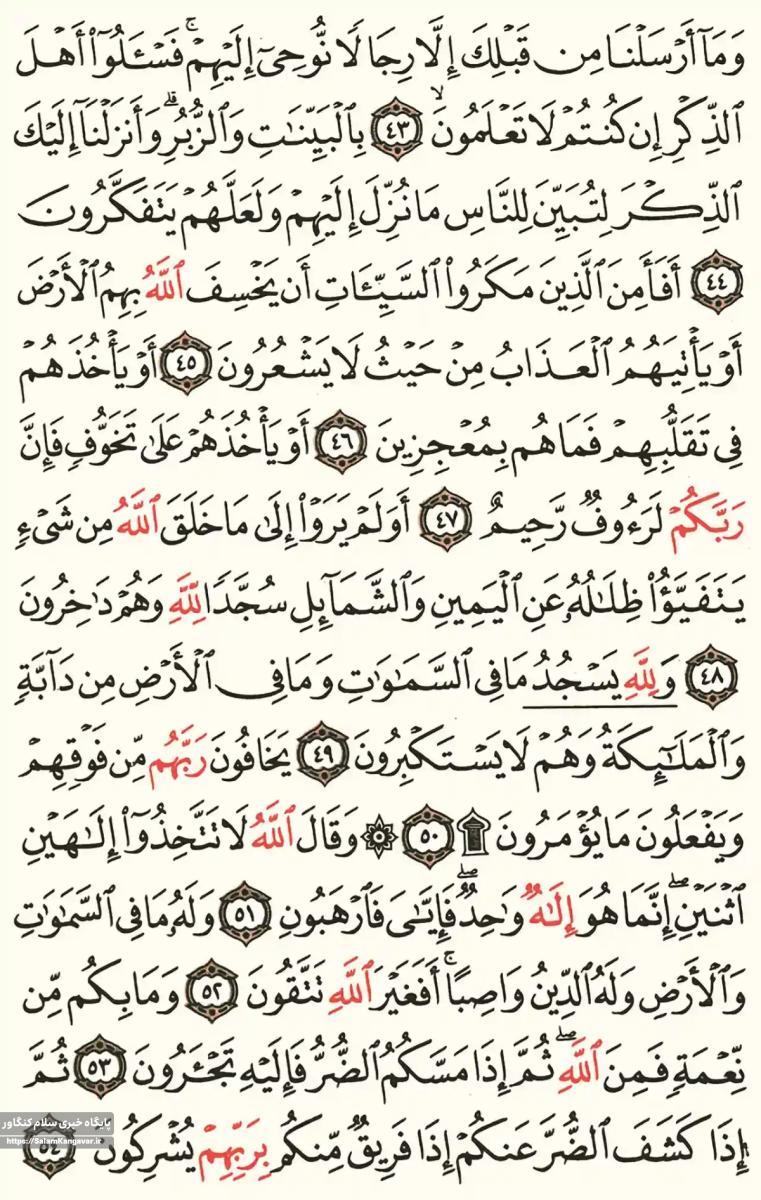 وَمَآ أَرْسَلْنَا مِن قَبْلِكَ إِلَّا رِجَالًا نُّوحِىٓ إِلَيْهِمْ ۚ فَسْـَٔلُوٓا۟ أَهْلَ
ٱلذِّكْرِ إِن كُنتُمْ لَا تَعْلَمُونَ ۙ ٤٣ بِٱلْبَيِّنَـٰتِ وَٱلزُّبُرِ ۗ وَأَنزَلْنَآ إِلَيْكَ
ٱلذِّكْرَ لِتُبَيِّنَ لِلنَّاسِ مَا نُزِّلَ إِلَيْهِمْ وَلَعَلَّهُمْ يَتَفَكَّرُونَ
٤٤ أَفَأَمِنَ ٱلَّذِينَ مَكَرُوا۟ ٱلسَّيِّـَٔاتِ أَن يَخْسِفَ ٱللَّهُ بِهِمُ ٱلْأَرْضَ
أَوْ يَأْتِيَهُمُ ٱلْعَذَابُ مِنْ حَيْثُ لَا يَشْعُرُونَ ٤٥ أَوْ يَأْخُذَهُمْ
فِى تَقَلُّبِهِمْ فَمَا هُم بِمُعْجِزِينَ ٤٦ أَوْ يَأْخُذَهُمْ عَلَىٰ تَخَوُّفٍ فَإِنَّ
رَبَّكُمْ لَرَءُوفٌ رَّحِيمٌ ٤٧ أَوَلَمْ يَرَوْا۟ إِلَىٰ مَا خَلَقَ ٱللَّهُ مِن شَىْءٍ
يَتَفَيَّؤُا۟ ظِلَـٰلُهُۥ عَنِ ٱلْيَمِينِ وَٱلشَّمَآئِلِ سُجَّدًا لِّلَّهِ وَهُمْ دَٰخِرُونَ
٤٨ وَلِلَّهِ يَسْجُدُ مَا فِى ٱلسَّمَـٰوَٰتِ وَمَا فِى ٱلْأَرْضِ مِن دَآبَّةٍ
وَٱلْمَلَـٰٓئِكَةُ وَهُمْ لَا يَسْتَكْبِرُونَ ٤٩ يَخَافُونَ رَبَّهُم مِّن فَوْقِهِمْ
وَيَفْعَلُونَ مَا يُؤْمَرُونَ ۩ ٥٠ ۞ وَقَالَ ٱللَّهُ لَا تَتَّخِذُوٓا۟ إِلَـٰهَيْنِ
ٱثْنَيْنِ ۖ إِنَّمَا هُوَ إِلَـٰهٌ وَٰحِدٌ ۖ فَإِيَّـٰىَ فَٱرْهَبُونِ ٥١ وَلَهُۥ مَا فِى ٱلسَّمَـٰوَٰتِ
وَٱلْأَرْضِ وَلَهُ ٱلدِّينُ وَاصِبًا ۚ أَفَغَيْرَ ٱللَّهِ تَتَّقُونَ ٥٢ وَمَا بِكُم مِّن
نِّعْمَةٍ فَمِنَ ٱللَّهِ ۖ ثُمَّ إِذَا مَسَّكُمُ ٱلضُّرُّ فَإِلَيْهِ تَجْـَٔرُونَ ٥٣ ثُمَّ
إِذَا كَشَفَ ٱلضُّرَّ عَنكُمْ إِذَا فَرِيقٌ مِّنكُم بِرَبِّهِمْ يُشْرِكُونَ ٥٤
پایگاه خبری سلام کنگاور
https://SalamKangavar.ir